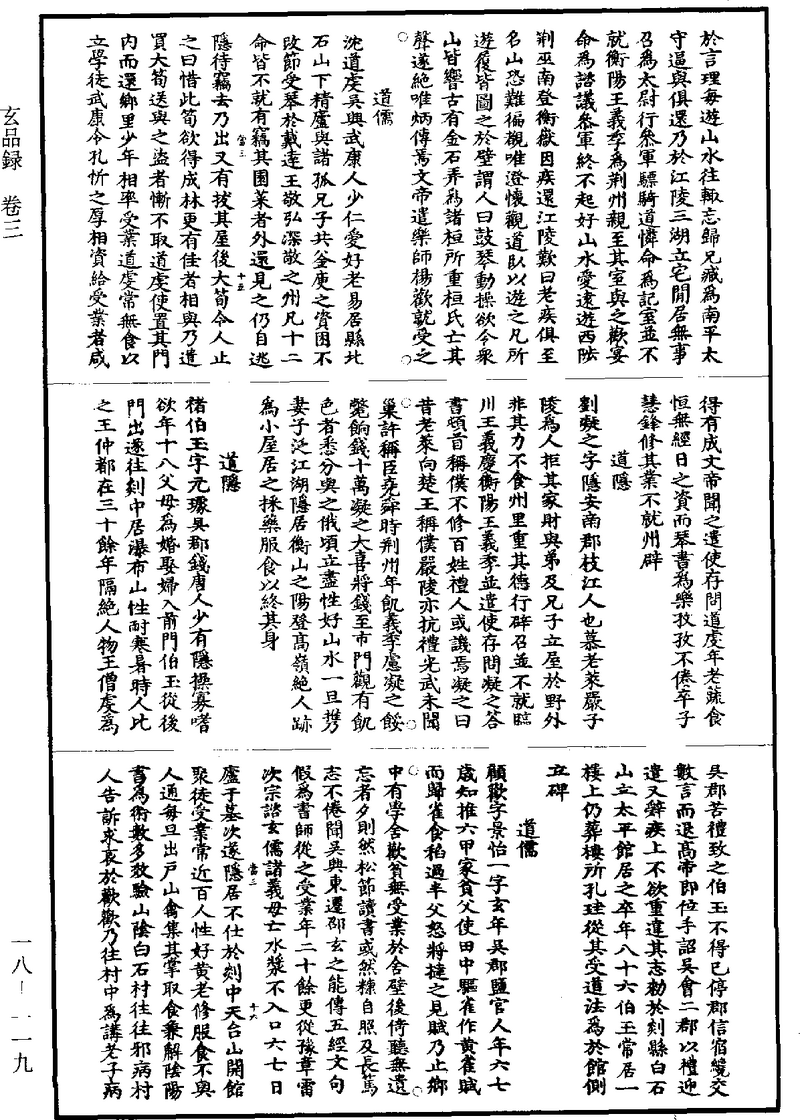 玄品録　卷三
於言理每遊山水往輒忘歸兄臧為南平太
守逼與俱還乃於江陵三湖立宅閒居無事
召為太尉行參軍驃騎道憐命為記室並不
就衡陽王義季為荆州親至其室與之歡宴
命為諮議參軍終不起好山水愛遠遊西陟
荆巫南登衡嶽因疾還江陵歎曰老疾俱至
名山恐難徧觀唯澄懷觀道臥以遊之凡所
遊履皆圖之於壁謂人曰鼓琴動操欲令衆
山皆響古有金石弄為諸桓所重桓氏亡其
聲遂絕唯炳傳焉文帝遣樂師楊歡就受之
道儒
沈道虔吳興武康人少仁愛好老易居縣北
石山下精廬與諸孤兄子共釜庾之資困不
改節受琴於戴逵王敬弘深敬之州凡十二
命皆不就有竊其園菜者外還見之仍自逃
隱待竊去乃出又有拔其屋後大筍令人止
之曰惜此筍欲得成林更有佳者相與乃遣
買大筍送與之盜者慚不取道虔使置其門
內而還鄉里少年相率受業道虔常無食以
立學徒武康令孔忻之厚相資給受業者咸
得有成文帝聞之遣使存問道虔年老蔬食
恒無經日之資而琴書為樂孜孜不倦卒子
慧鋒修其業不就州辟
道隱
劉凝之字隱安南郡枝江人也慕老萊嚴子
陵為人拒其家財與弟及兄子立屋於野外
非其力不食州里重其德行辟召並不就臨
川王義慶衡陽王義季並遣使存問凝之答
書頓首稱僕不修百姓禮人或譏焉凝之曰
昔老萊向楚王稱僕嚴陵亦抗禮光武未聞
巢許稱臣堯舜時荆州年飢義季慮凝之餒
斃餉錢十萬凝之大喜將錢至市門觀有飢
色者悉分與之俄頃立盡性好山水一旦携
妻子泛江湖隱居衡山之陽登高嶺絕人跡
為小屋居之採藥服食以終其身
道隱
禇伯玉字元璩吳郡錢唐人少有隱操寡嗜
欲年十八父母為婚娶婦入前門伯玉從後
門出遂往剡中居瀑布山性耐寒暑時人比
之王仲都在三十餘年隔絕人物王僧虔為
吳郡苦禮致之伯玉不得已停郡信宿纔交
數言而退高帝即位手詔吳會二郡以禮迎
遣又辭疾上不欲重違其志勑於剡縣白石
山立太平館居之卒年八十六伯玉常居一
樓上仍葬樓所孔珪從其受道法為於館側
立碑
道儒
顧歡字景怡一字玄年吳郡鹽官人年六七
歲知推六甲家貧父使田中驅雀作黃雀賦
而歸雀食稻過半父怒將撻之見賦乃止鄉
中有學舍歡貧無受業於舍壁後倚聽無遺
忘者夕則然松節讀書或然糠自照及長篤
志不倦聞吳興東遷邵玄之能傳五經文句
假為書師從之受業年二十餘更從豫章雷
次宗諮玄儒諸義母亡水漿不入口六七日
廬于墓次遂隱居不仕於剡中天台山開館
聚徒受業常近百人性好黃老修服食不與
人通每旦出戶山禽集其掌取食兼解陰陽
書為術數多效驗山陰白石村往往邪病村
人告訴求哀於歡歡乃往村中為講老子病
一八—一一九